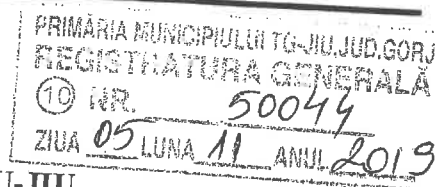 PRIMĂRIA MUNICIPIULUI TG-JIU.JUD.GORJ
REGISTRATURA GENERALĂ
10 NR. 50044
ZIUA 05 LUNA 11 ANUL 2019